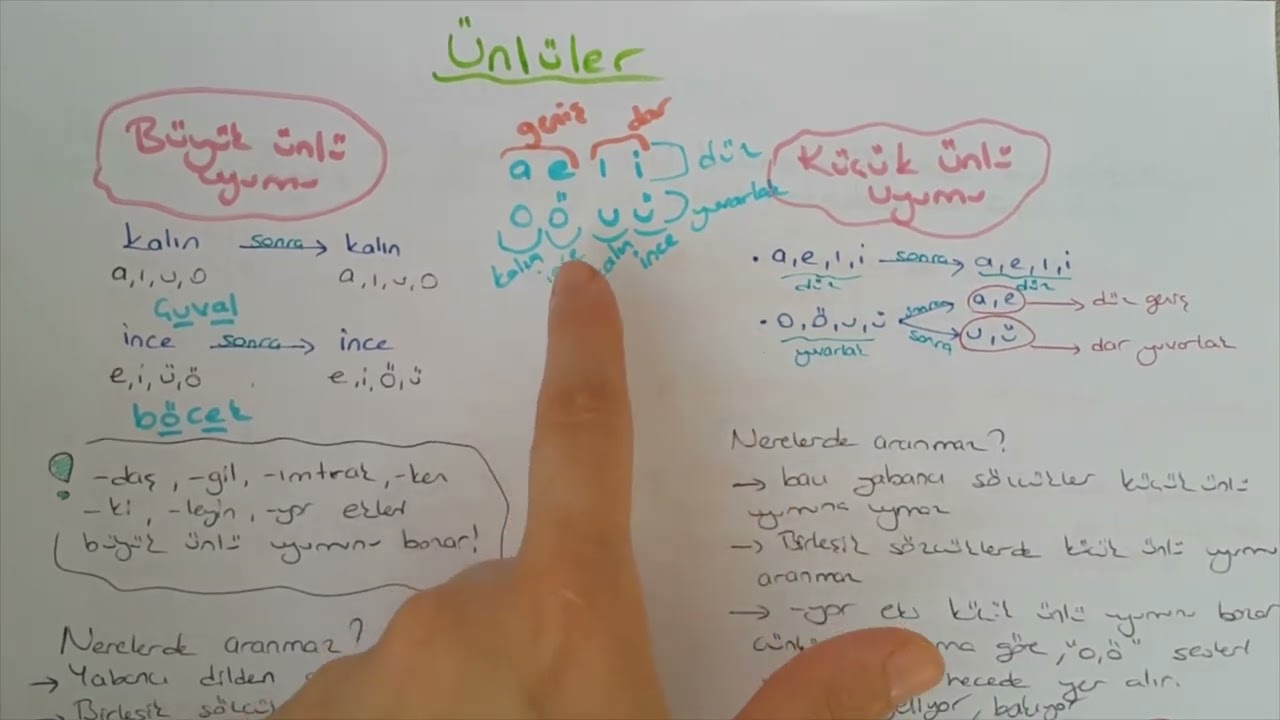 Ünlüler
Büyük ünlü
uyumu
kalın sonra kalın
a,ı,u,o a,ı,u,o
Çuval
ince sonra ince
e,i,ü,ö e,i,ö,ü
böcek
! -daş, -gil, -ımtrak, -ken
-ki, -leyin, -yor ekleri
büyük ünlü uyumunu bozar!
Nerelerde aranmaz?
→ Yabancı dilden
→ Birleşik
geniş dar
a e ı i düz
o ö u ü yuvarlak
kalın ince kalın ince
Küçük ünlü
uyumu
• a,e,ı,i sonra a,e,ı,i
düz düz
• o,ö,u,ü sonra a,e → düz geniş
yuvarlak sonra u,ü → dar yuvarlak
Nerelerde aranmaz?
→ bazı yabancı sözcükler küçük ünlü
uyumuna uymaz
→ Birleşik sözcüklerde küçük ünlü uyumu
aranmaz
→ -yor eki küçük ünlü uyumunu bozar
göre, "o,ö" sesleri
hecede yer alır.
geliyor, bakıyor